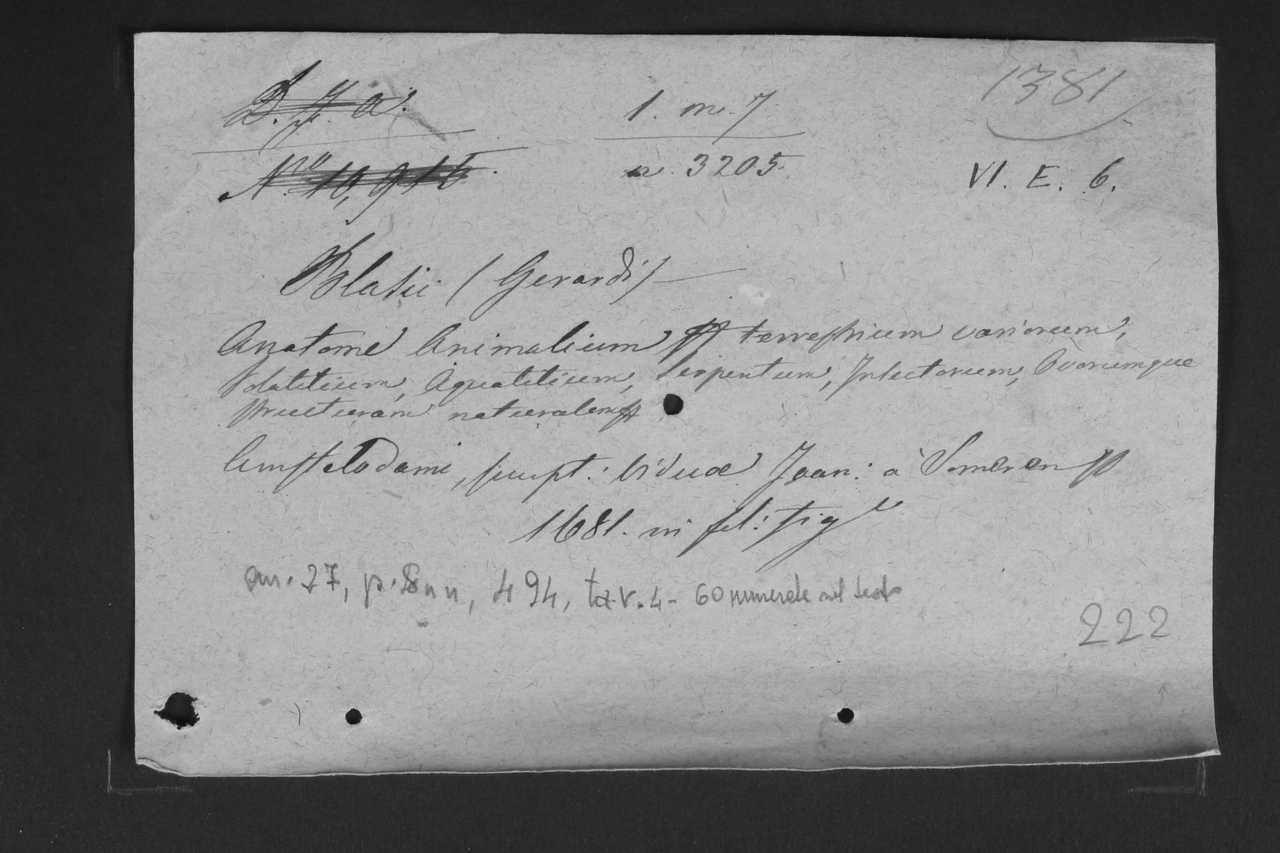 D. J. a.
1. m. 7
1381
N.º 10,916
n. 3205
VI. E. 6.
Blasii (Gerardi)
Anatome Animalium terrestrium variorum,
Volatilium, Aquatilium, Serpentum, Insectorum, Ovorumque
structuram naturalem
Amstelodami, sumpt: Viduæ Joan: à Someren
1681. in fol: fig
an. 27, p. 8 nn, 494, tav. 4 - 60 numerate nel testo
222